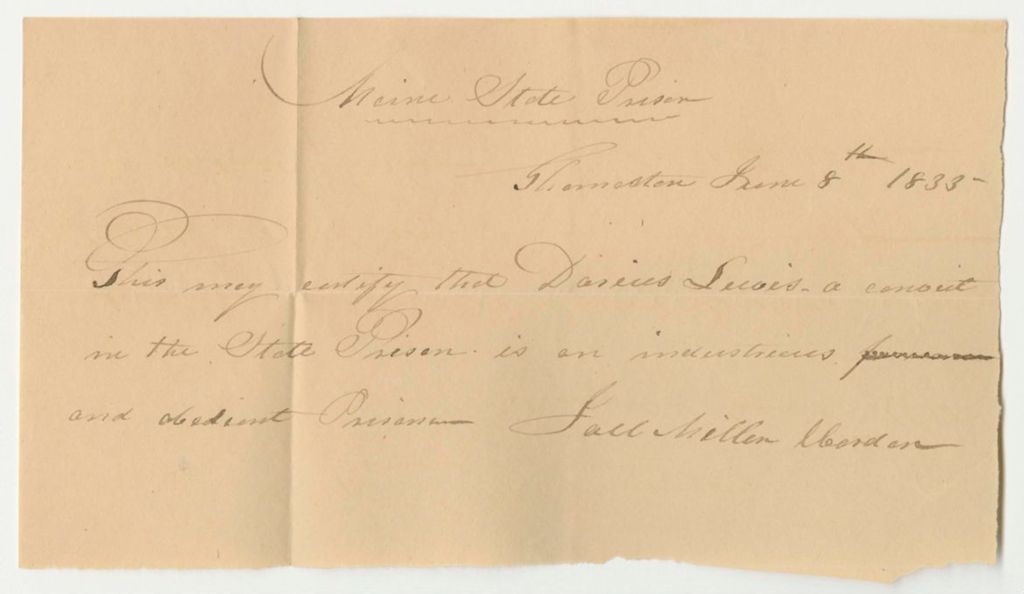 Maine State Prison
Thomaston June 8th 1833-
This may certify that Darius Lewis - a convict
in the State Prison is an industrious
and obedient Prisoner Joel Miller Warden